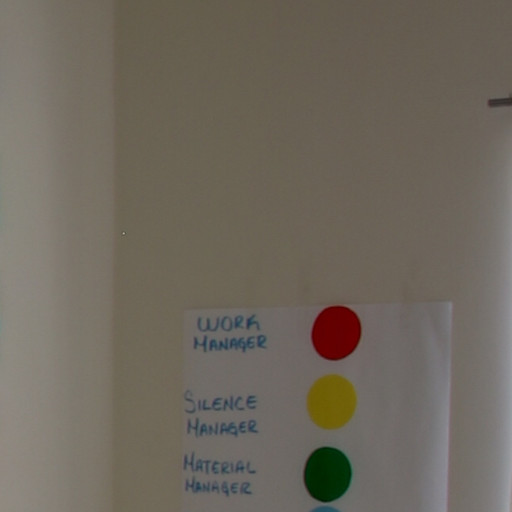 WORK
MANAGER
SILENCE
MANAGER
MATERIAL
MANAGER